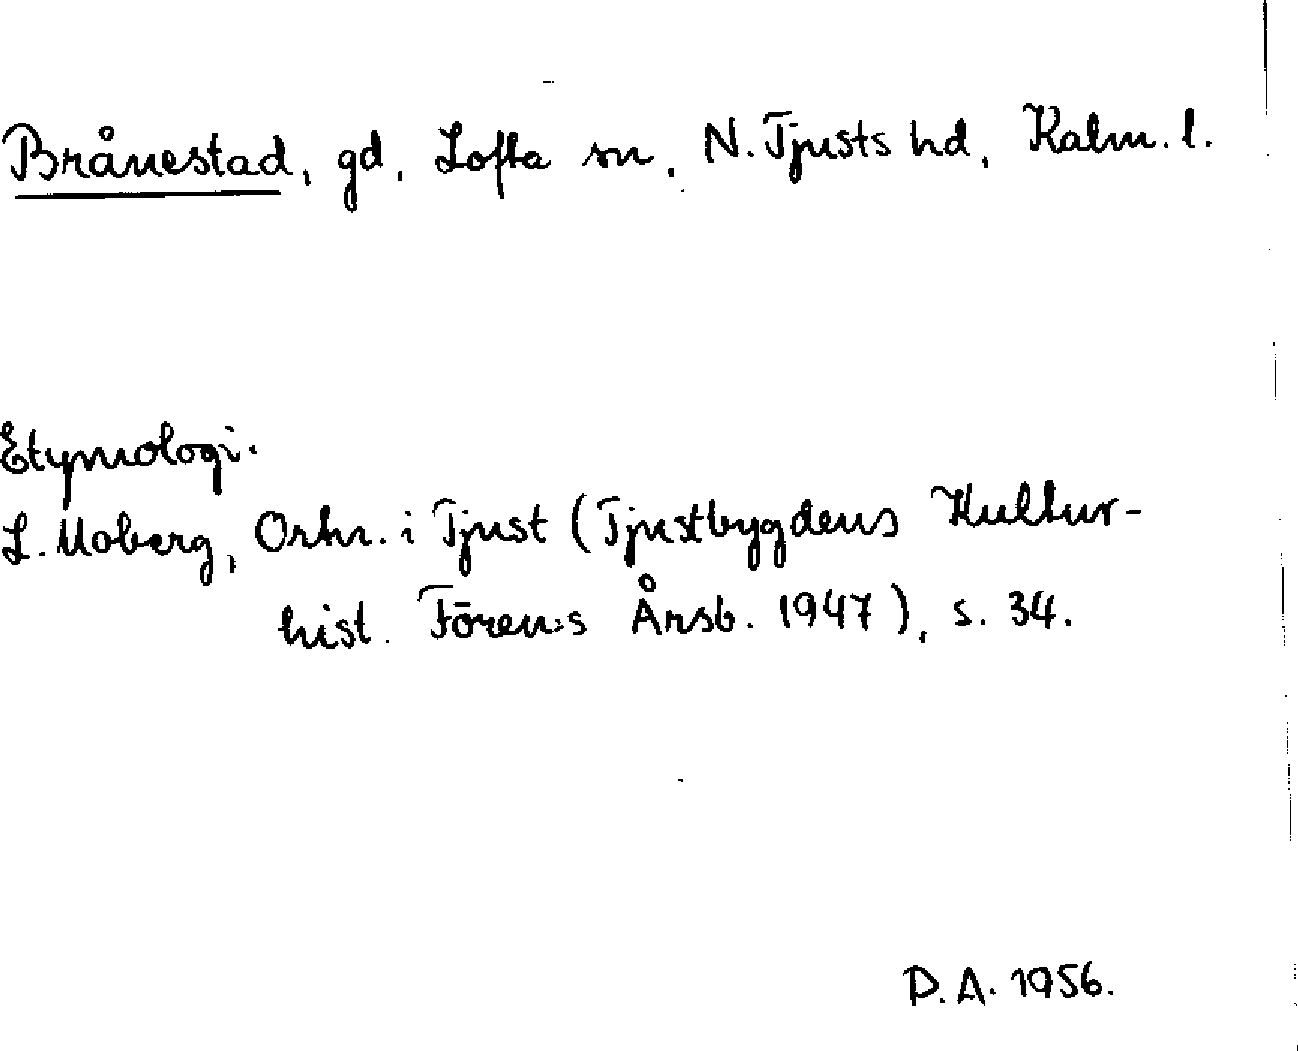 Brånestad, gd, Lofta sn, N. Tjusts hd, Kalm. l.
Etymologi.
L. Moberg, Ortn. i Tjust (Tjustbygdens Kultur-
hist. Fören:s Årsb. 1947), s. 34.
D.A. 1956.